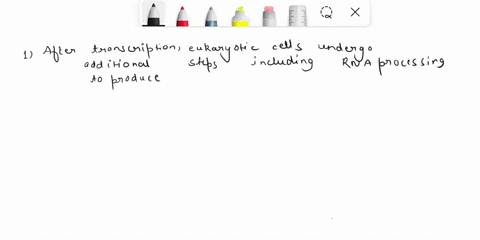 1) After transcription, eukaryotic cells undergo
additional steps including RNA processing
to produce